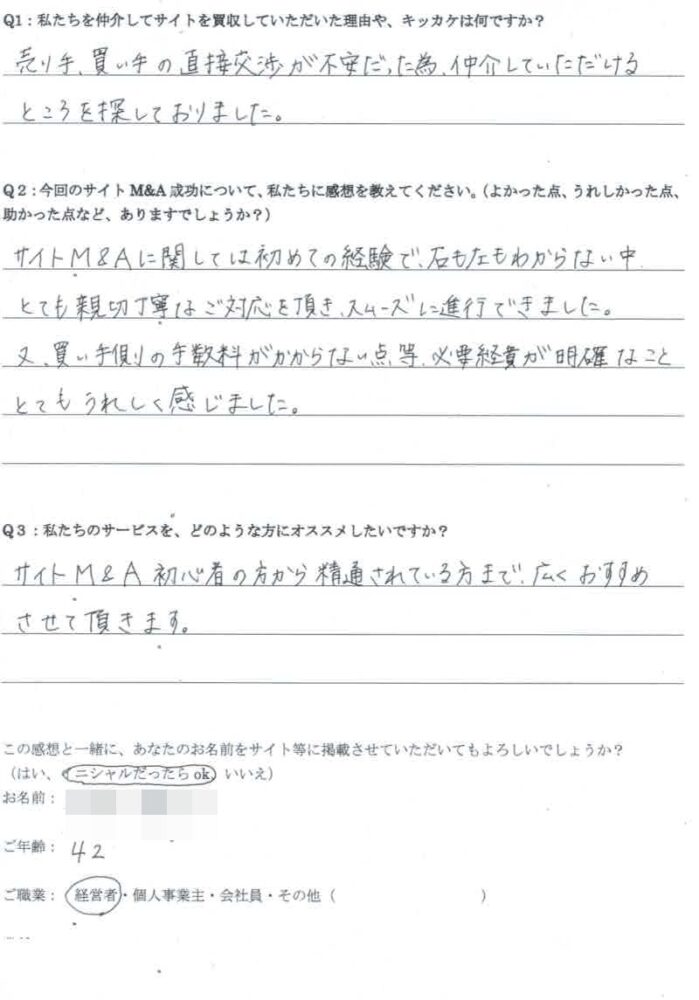 Q1：私たちを仲介してサイトを買収していただいた理由や、キッカケは何ですか？
売り手、買い手の直接交渉が不安だった為、仲介していただける
ところを探しておりました。
Q2：今回のサイトM&A成功について、私たちに感想を教えてください。（よかった点、うれしかった点、
助かった点など、ありますでしょうか？）
サイトM&Aに関しては初めての経験で、右も左もわからない中、
とても親切丁寧なご対応を頂き、スムーズに進行できました。
又、買い手側の手数料がかからない点、等、必要経費が明確なこと
とてもうれしく感じました。
Q3：私たちのサービスを、どのような方にオススメしたいですか？
サイトM&A初心者の方から精通されている方まで、広くおすすめ
させて頂きます。
この感想と一緒に、あなたのお名前をサイト等に掲載させていただいてもよろしいでしょうか？
（はい、イニシャルだったらok、いいえ）
お名前：
ご年齢： 42
ご職業： 経営者・個人事業主・会社員・その他（ ）